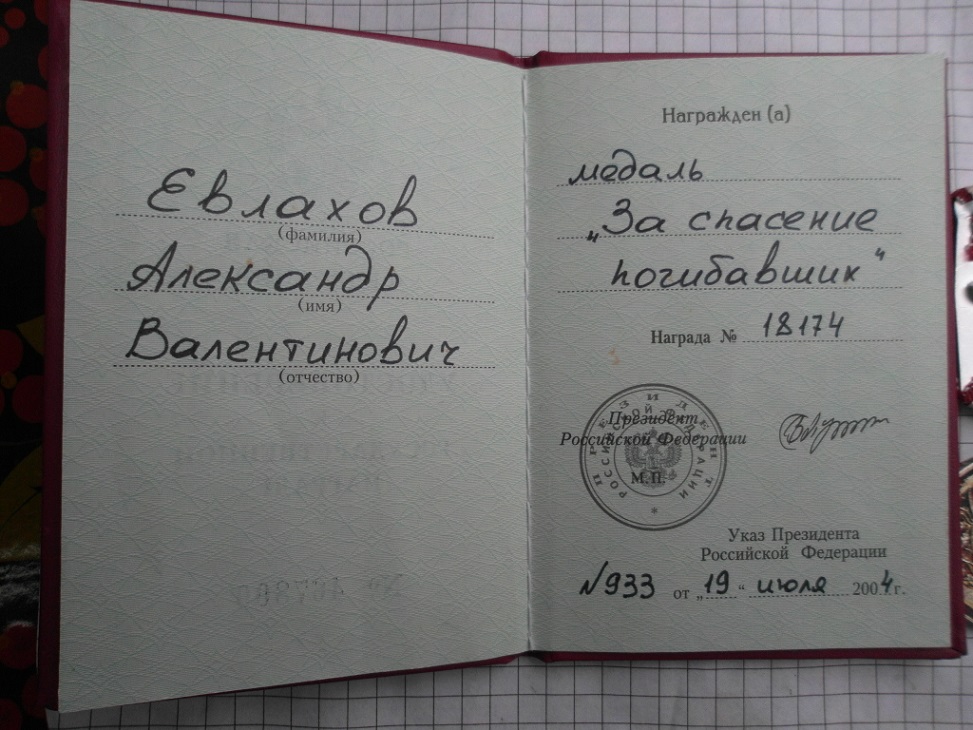 Евлахов
(фамилия)
Александр
(имя)
Валентинович
(отчество)
Награжден (а)
медаль
„За спасение
погибавших“
Награда № 18174
ПРЕЗИДЕНТ
РОССИЙСКОЙ ФЕДЕРАЦИИ
*
Президент
Российской Федерации
М.П.
Указ Президента
Российской Федерации
№933 от „19“ июля 2004г.